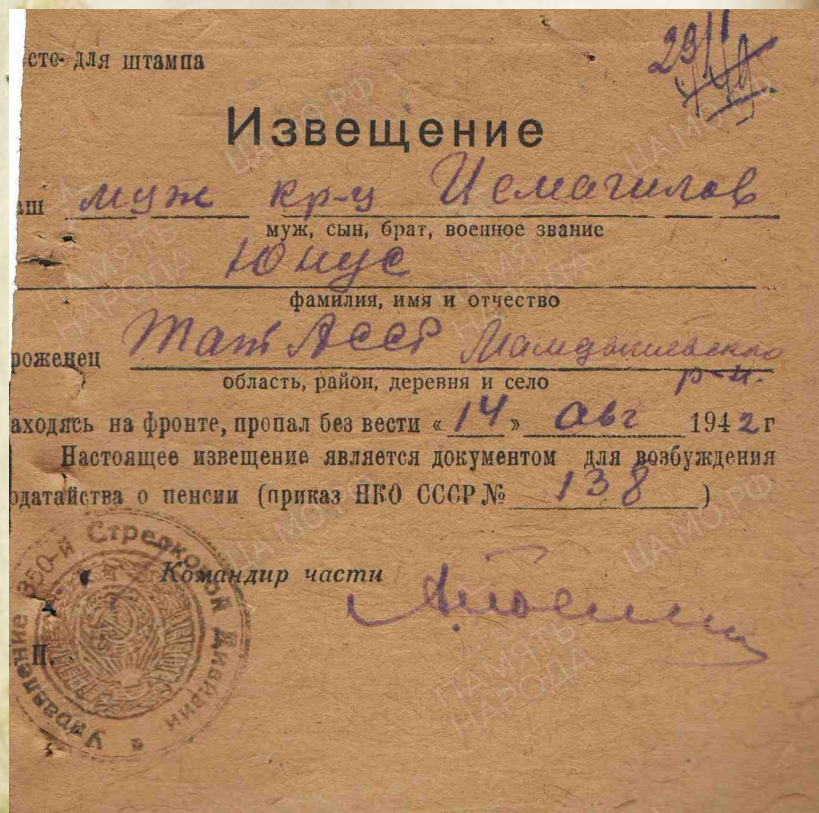 сто для штампа
29/I
Извещение
аш муж кр-ц Исмагилов
муж, сын, брат, военное звание
Юнус
фамилия, имя и отчество
роженец Тат АССР Мамдышевского
р-н.
область, район, деревня и село
аходясь на фронте, пропал без вести «14» авг 1942 г
Настоящее извещение является документом для возбуждения
одатайства о пенсии (приказ НКО СССР № 138)
Командир части
П.
Управление 350-й Стрелковой Дивизии
ЦА МО.РФ
ПАМЯТЬ
НАРОДА